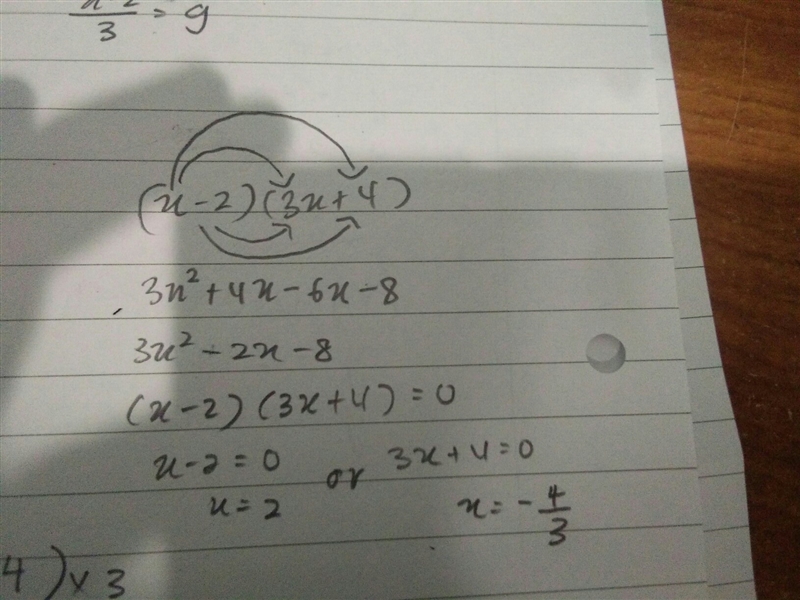 x-2/3 = 9
(x-2)(3x+4)
3x²+4x-6x-8
3x²-2x-8
(x-2)(3x+4)=0
x-2=0 or 3x+4=0
x=2 x=-4/3
4)x3